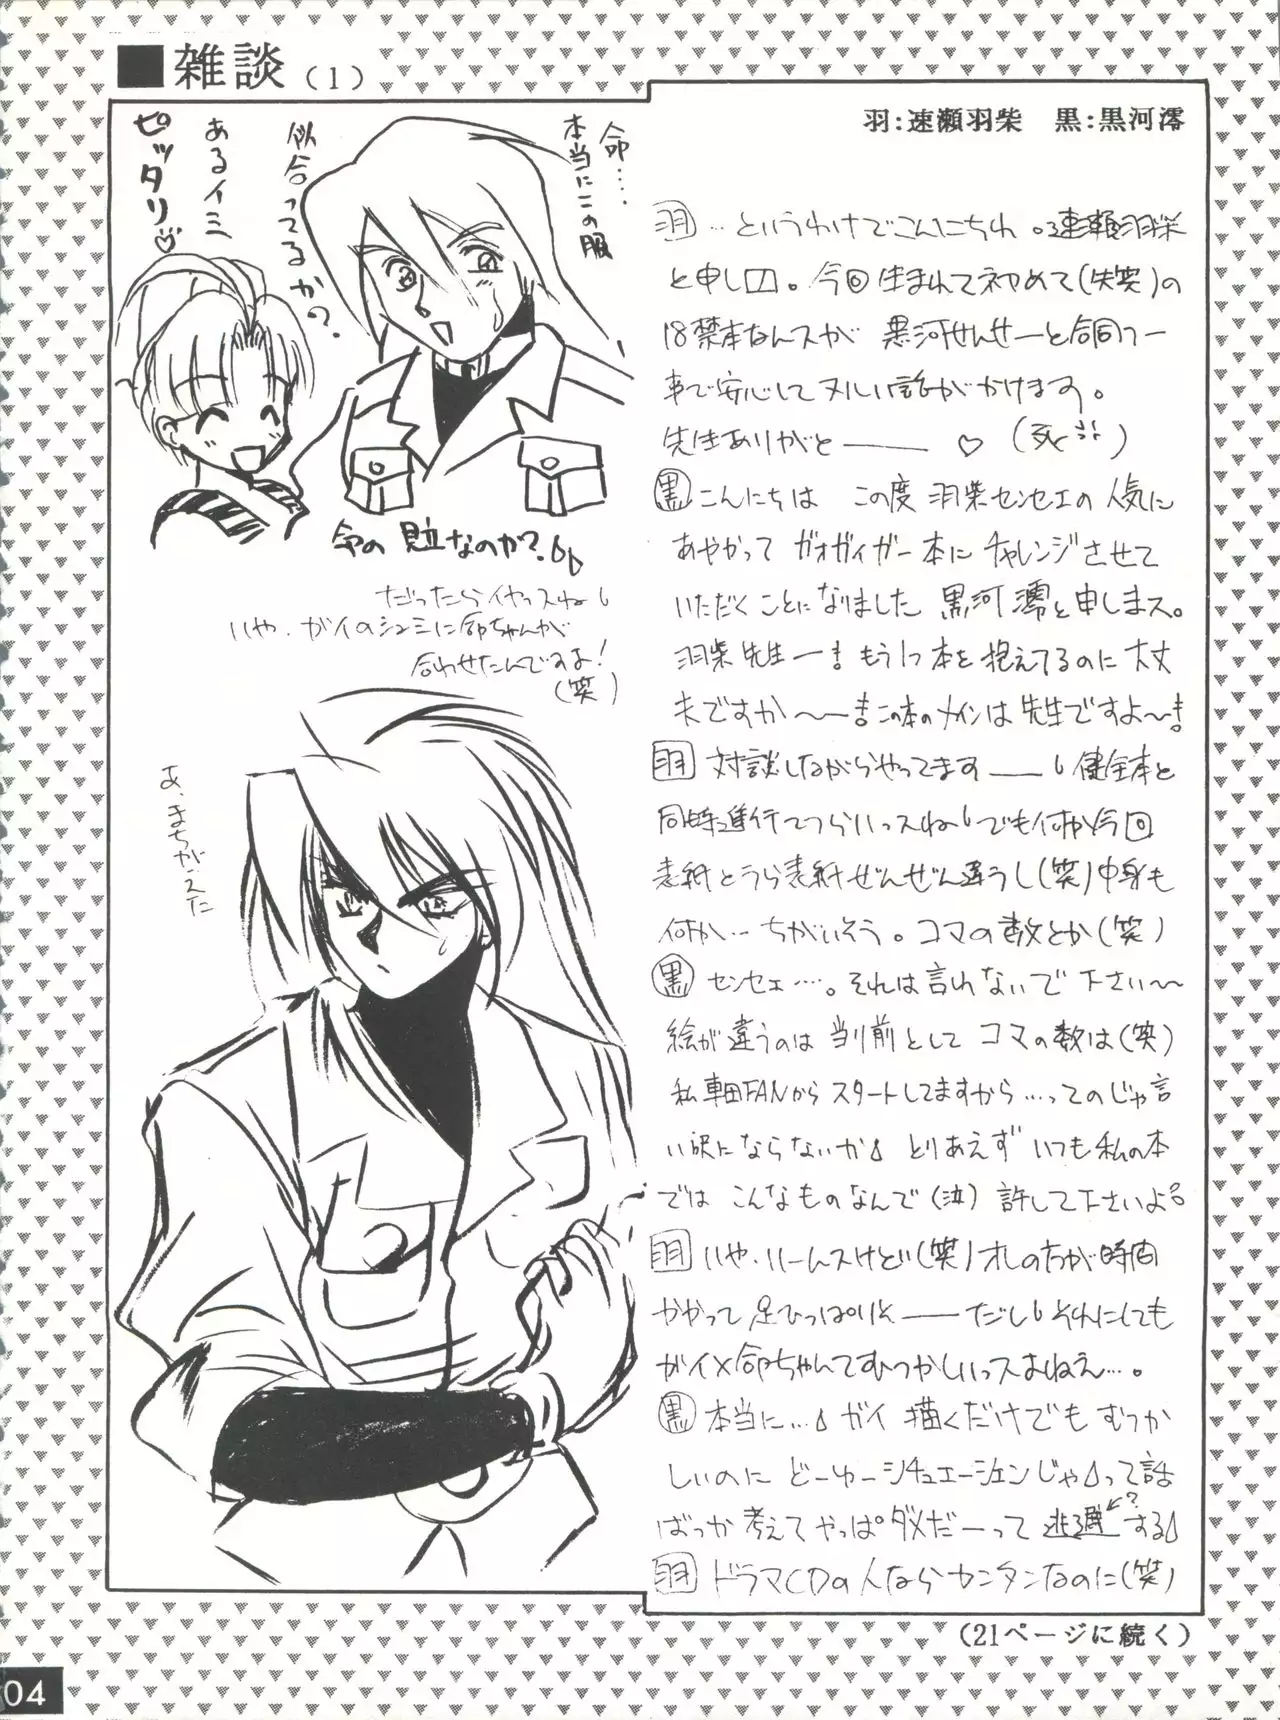 ■雑談(1)
命….
本当にこの服
似合ってるか?
あるイミ
ピッタリ♡
命の見立なのか?
だったらイヤっスね
いや、ガイのシュミに命ちゃんが
合わせたんですよ!
(笑)
あ、まちがえた
羽:速瀬羽柴 黒:黒河澪
羽 …というわけでこんにちわ。速瀬羽柴
と申し□。今回生まれて初めて(失笑)の
18禁本なんスが 黒河せんせーと合同ワー
事で安心してヌルい話がかけます。
先生ありがと―― ♡ (死
黒 こんにちは この度 羽柴センセエの人気に
あやかって ガオガイガー本に チャレンジさせて
いただくことになりました 黒河澪と申しまス。
羽柴先生ー! もう1つ本を抱えてるのに大丈
夫ですか〜ー! この本のメインは先生ですよ〜!
羽 対談しながらやってます―― 健全本と
同時進行でつらいっスね でも何か今回
表紙とうら表紙ぜんぜん違うし(笑)中身も
何か… ちがいそう。コマの数とか(笑)
黒 センセェ…。それは言わないで下さい〜
絵が違うのは当り前として コマの数は(笑)
私車田FANからスタートしてますから…ってのじゃ言
い訳にならないか とりあえず いつも私の本
では こんなものなんで(泣) 許して下さいよ
羽 いや、いーんスけどい(笑)オレの方が時間
かかって足ひっぱりそ――だし それにしても
ガイ×命ちゃんてむつかしいっスよねえ…。
黒 本当に… ガイ 描くだけでも むつか
しいのに どーゆーシチュエーションじゃって話
ばっか考えて やっぱダメだーって 逃避?する
羽 ドラマCDの人ならカンタンなのに(笑)
(21ページに続く)
04